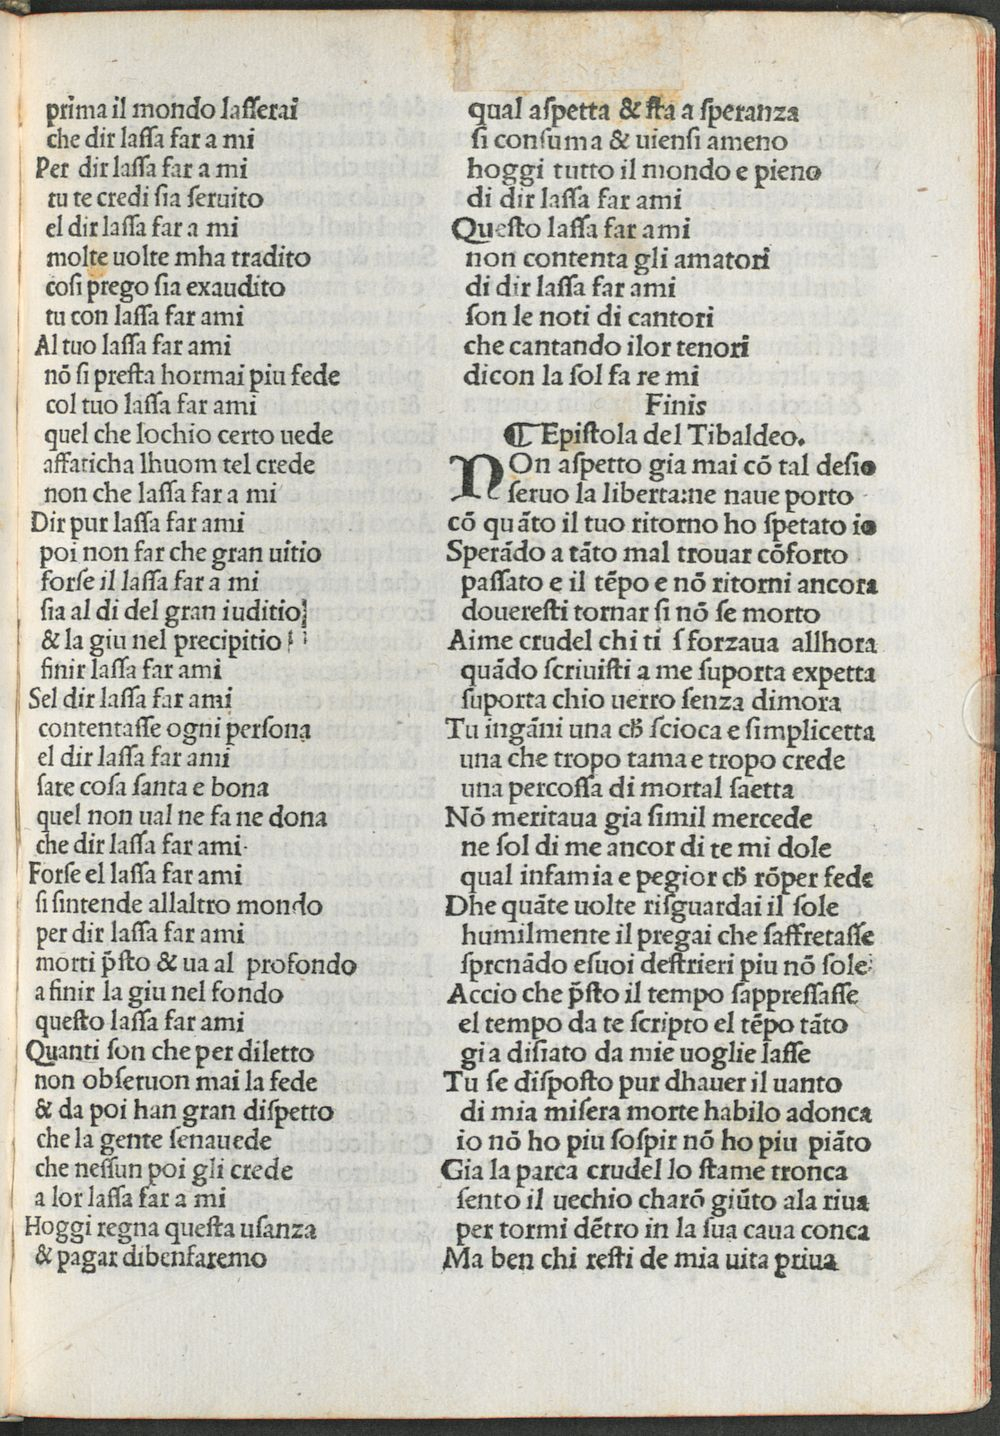 prima il mondo laſſerai
che dir laſſa far a mi
Per dir laſſa far a mi
tu te credi ſia ſeruito
el dir laſſa far a mi
molte uolte mha tradito
coſi prego ſia exaudito
tu con laſſa far ami
Al tuo laſſa far ami
nō ſi preſta hormai piu fede
col tuo laſſa far ami
quel che lochio certo uede
affaticha lhuom tel crede
non che laſſa far a mi
Dir pur laſſa far ami
poi non far che gran uitio
forſe il laſſa far a mi
ſia al di del gran iuditio
& la giu nel precipitio
finir laſſa far ami
Sel dir laſſa far ami
contentaſſe ogni perſona
el dir laſſa far ami
ſare coſa ſanta e bona
quel non ual ne fa ne dona
che dir laſſa far ami
Forſe el laſſa far ami
ſi ſintende allaltro mondo
per dir laſſa far ami
morti p̄ſto & ua al profondo
a finir la giu nel fondo
queſto laſſa far ami
Quanti ſon che per diletto
non obſeruon mai la fede
& da poi han gran diſpetto
che la gente ſenauede
che neſſun poi gli crede
a lor laſſa far a mi
Hoggi regna queſta uſanza
& pagar dibenfaremo
qual aſpetta & ſta a ſperanza
ſi conſuma & uienſi ameno
hoggi tutto il mondo e pieno
di dir laſſa far ami
Queſto laſſa far ami
non contenta gli amatori
di dir laſſa far ami
ſon le noti di cantori
che cantando ilor tenori
dicon la ſol fa re mi
Finis
¶ Epiſtola del Tibaldeo.
NOn aſpetto gia mai cō tal deſio
ſeruo la liberta:ne naue porto
cō quāto il tuo ritorno ho ſpetato io
Sperādo a tāto mal trouar cōforto
paſſato e il tēpo e nō ritorni ancora
douereſti tornar ſi nō ſe morto
Aime crudel chi ti ſforzaua allhora
quādo ſcriuiſti a me ſuporta expetta
ſuporta chio uerro ſenza dimora
Tu ingāni una cħ ſcioca e ſimplicetta
una che tropo tama e tropo crede
una percoſſa di mortal ſaetta
Nō meritaua gia ſimil mercede
ne ſol di me ancor di te mi dole
qual infamia e pegior cħ rōper fede
Dhe quāte uolte riſguardai il ſole
humilmente il pregai che ſaffretaſſe
ſprcnādo eſuoi deſtrieri piu nō ſole:
Accio che p̄ſto il tempo ſappreſſaſſe
el tempo da te ſcripto el tēpo tāto
gia diſiato da mie uoglie laſſe
Tu ſe diſpoſto pur dhauer il uanto
di mia miſera morte habilo adonca
io nō ho piu ſoſpir nō ho piu piāto
Gia la parca crudel lo ſtame tronca
ſento il uechio charō giūto ala riua
per tormi dētro in la ſua caua conca
Ma ben chi reſti de mia uita priua